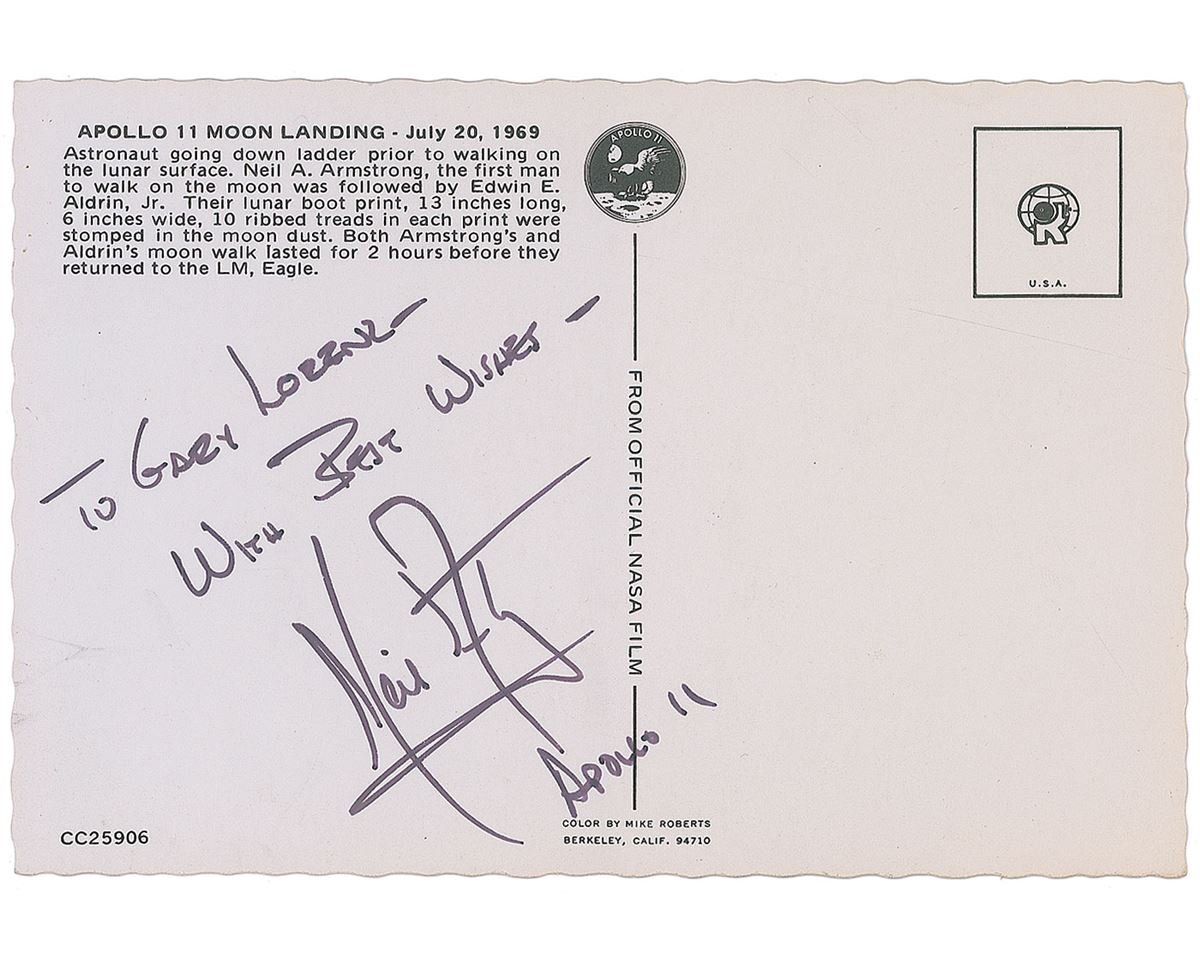 APOLLO 11 MOON LANDING - July 20, 1969
Astronaut going down ladder prior to walking on
the lunar surface. Neil A. Armstrong, the first man
to walk on the moon was followed by Edwin E.
Aldrin, Jr. Their lunar boot print, 13 inches long,
6 inches wide, 10 ribbed treads in each print were
stomped in the moon dust. Both Armstrong's and
Aldrin's moon walk lasted for 2 hours before they
returned to the LM, Eagle.
APOLLO 11
R
U.S.A.
TO GARY LORENZ-
WITH BEST WISHES -
Neil
APOLLO 11
FROM OFFICIAL NASA FILM
CC25906
COLOR BY MIKE ROBERTS
BERKELEY, CALIF. 94710